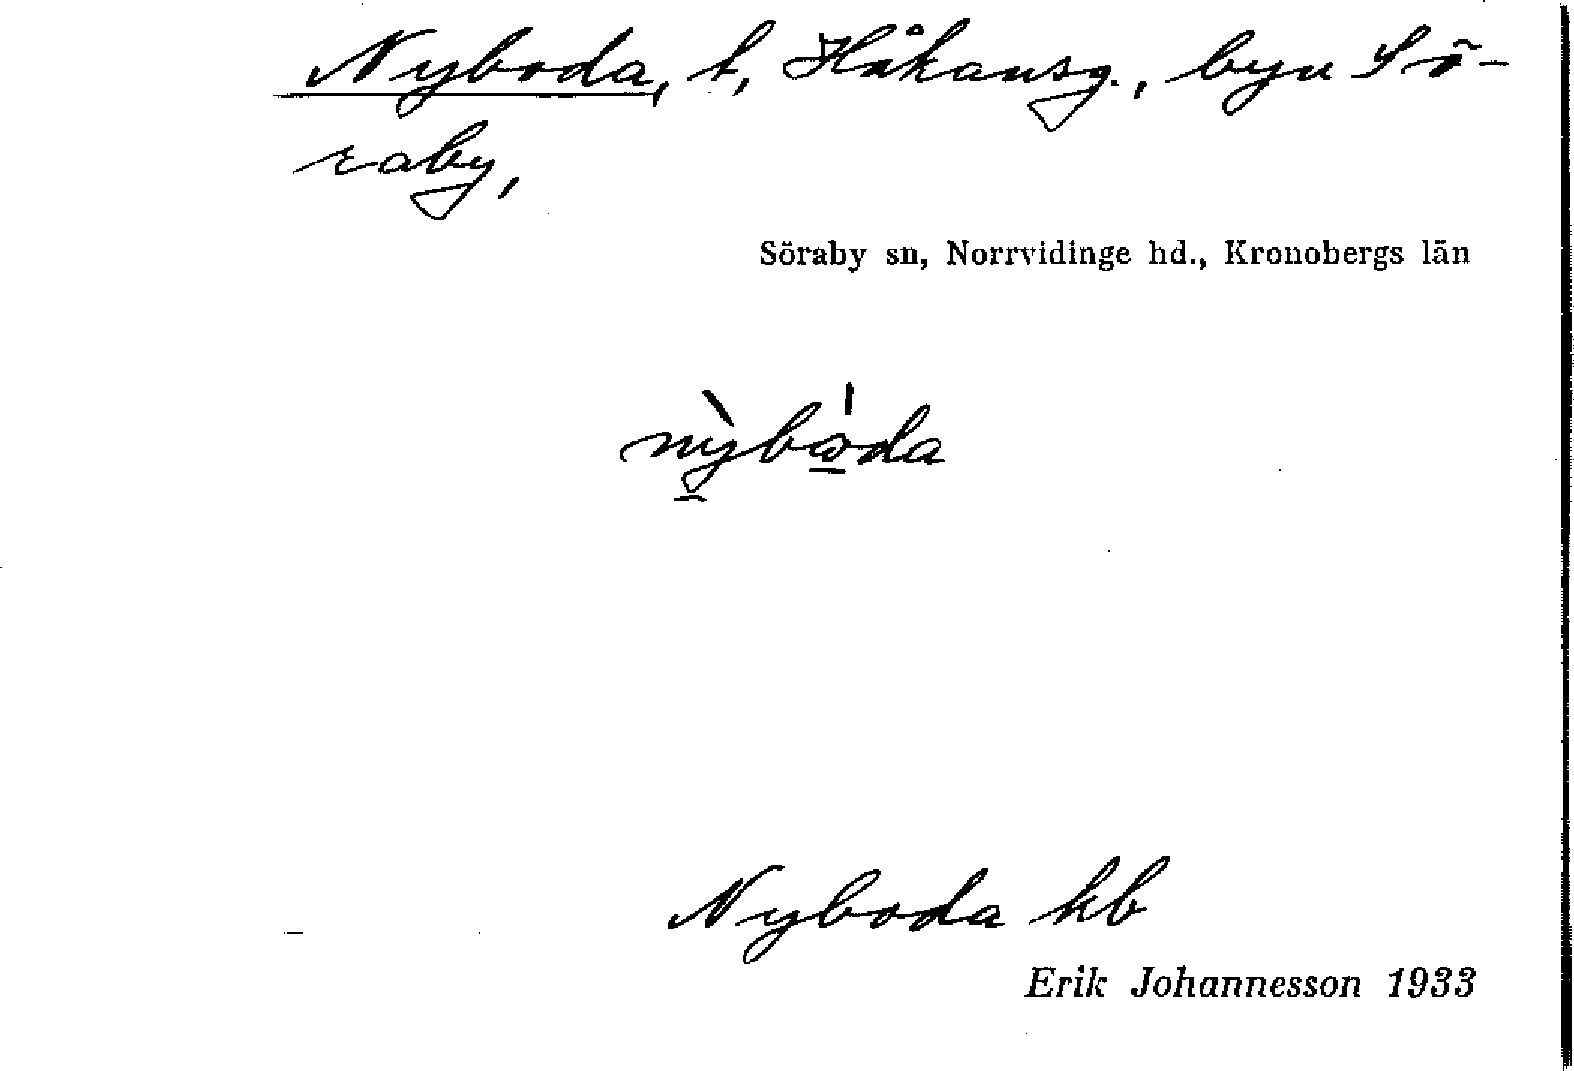 Nyboda, t, Håkansg., byn Sö-
raby,
Söraby sn, Norrvidinge hd., Kronobergs län
Nyboda kb
Erik Johannesson 1933